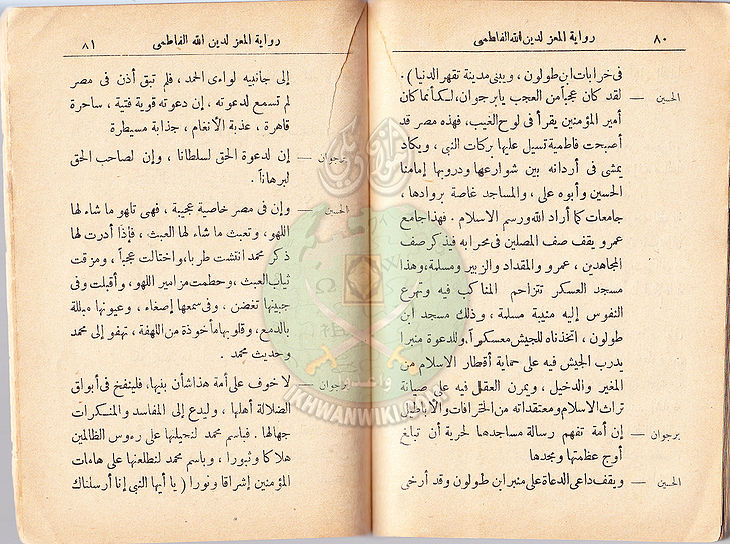 رواية المعز لدين الله الفاطمى ٨٠
فى خرابات ابن طولون ، ويبنى مدينة تقهر الدنيا ) .
الحسين — لقد كان عجيباً من العجب يابرجوان، لسكأنما كان
أمير المؤمنين يقرأ فى لوح الغيب، فهذه مصر قد
أصبحت فاطمية تسيل عليها بركات النبى ، ويكاد
يمشى فى أردانه بين شوارعها ودروبها إمامنا
الحسين وأبوه على ، والمساجد غاصة بروادها ،
جامعات كما أراد الله ورسم الاسلام . فهذا جامع
عمرو يقف صف المصلين فى محرابه فيذكر صف
المجاهدين ، عمرو والمقداد والزبير ومسلمة، وهذا
مسجد العسكر تتزاحم المناكب فيه وتهرع
النفوس إليه منيبة مسلمة ، وذلك مسجد ابن
طولون ، اتخذناه للجيش معسكراً، وللدعوة منبرا
يدرب الجيش فيه على حماية أقطار الاسلام من
المغير والدخيل ، ويمرن العقل فيه على صيانة
تراث الاسلام ومعتقداته من الخرافات والأباطيل
برجوان — إن أمة تفهم رسالة مساجدها لحرية أن تبلغ
أوج عظمتها ومجدها
الحسين — ويقف داعى الدعاة على منبر ابن طولون وقد أرخى
رواية المعز لدين الله الفاطمى ٨١
إلى جانبيه لواءى الحمد ، فلم تبق أذن فى مصر
لم تسمع لدعوته ، إن دعوته قوية فتية ، ساحرة
قاهرة ، عذبة الأنغام ، جذابة مسيطرة
برجوان — إن لدعوة الحق لسلطانا ، وإن لصاحب الحق
لبرهاناً .
الحسين — وإن فى مصر خاصية عجيبة ، فهى تلهو ما شاء لها
اللهو ، وتعبث ما شاء لها العبث ، فإذا أدرت لها
ذكر محمد انتشت طربا، واختالت عجباً ، ومزقت
ثياب العبث ، وحطمت مزامير اللهو، وأقبلت وفى
جبينها تغضن ، وفى سمعها إصغاء ، وعيونها مبللة
بالدمع، وقلوبها مأخوذة من اللهفة ، تهفو إلى محمد
وحديث محمد .
برجوان — لا خوف على أمة هذا شأن بنيها، فلينفخ فى أبواق
الضلالة أهلها ، وليدع إلى المفاسد والمنكرات
جهالها . فباسم محمد لنحيلنها على رءوس الظالمين
هلاكا وثبورا ، وباسم محمد لنطلعنها على هامات
المؤمنين إشراقا ونورا ( يا أيها النبى إنا أرسلناك
IKHWANWIKI.COM